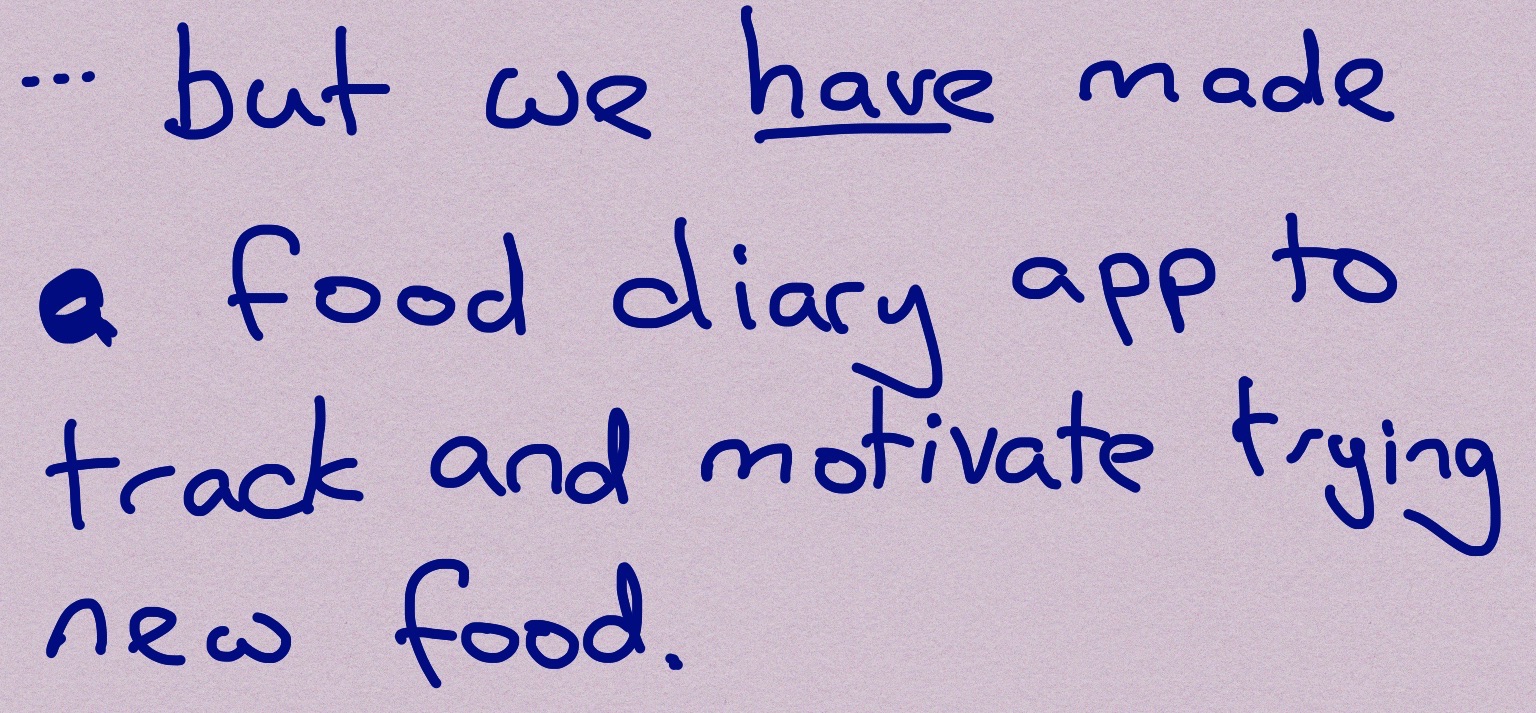 ... but we have made
a food diary app to
track and motivate trying
new food.